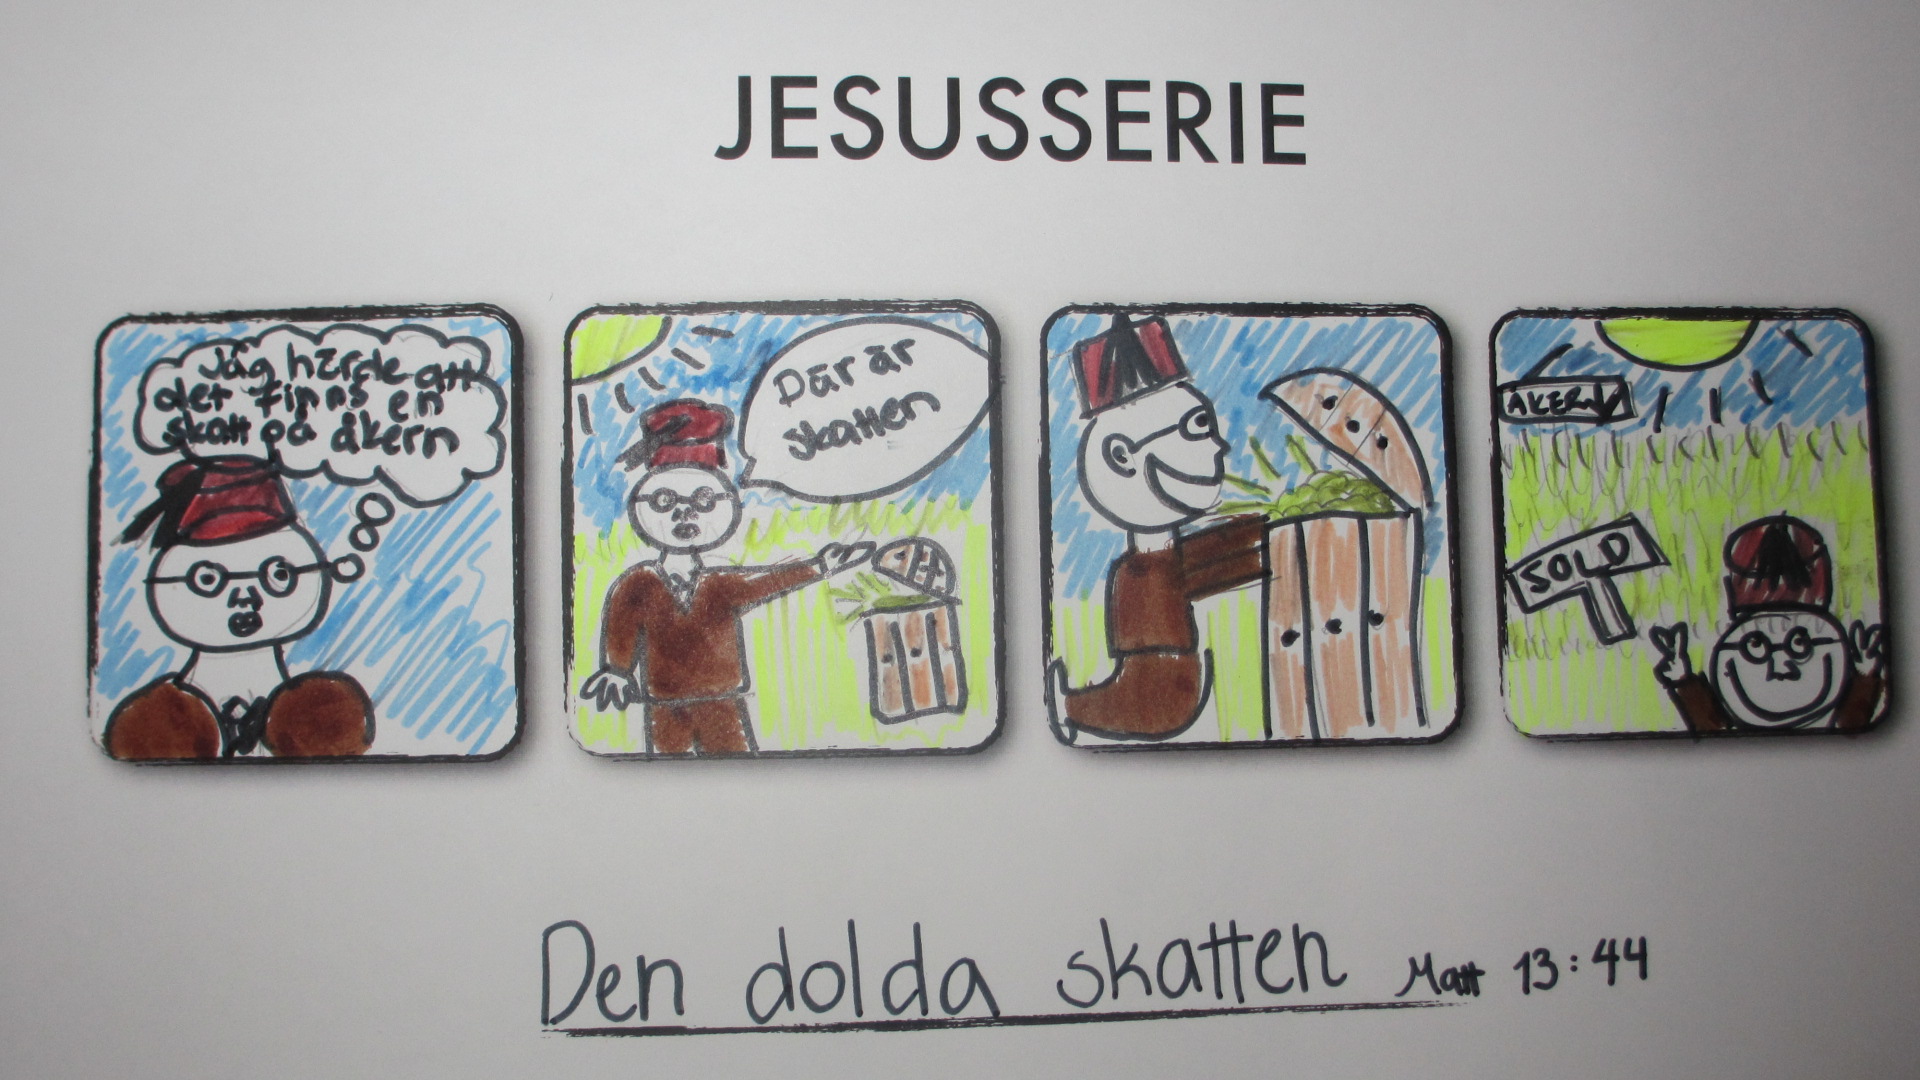 JESUSSERIE
Jag hörde att
det finns en
skatt på åkern
Där är
skatten
ÅKERN
SOLD
Den dolda skatten Matt 13:44